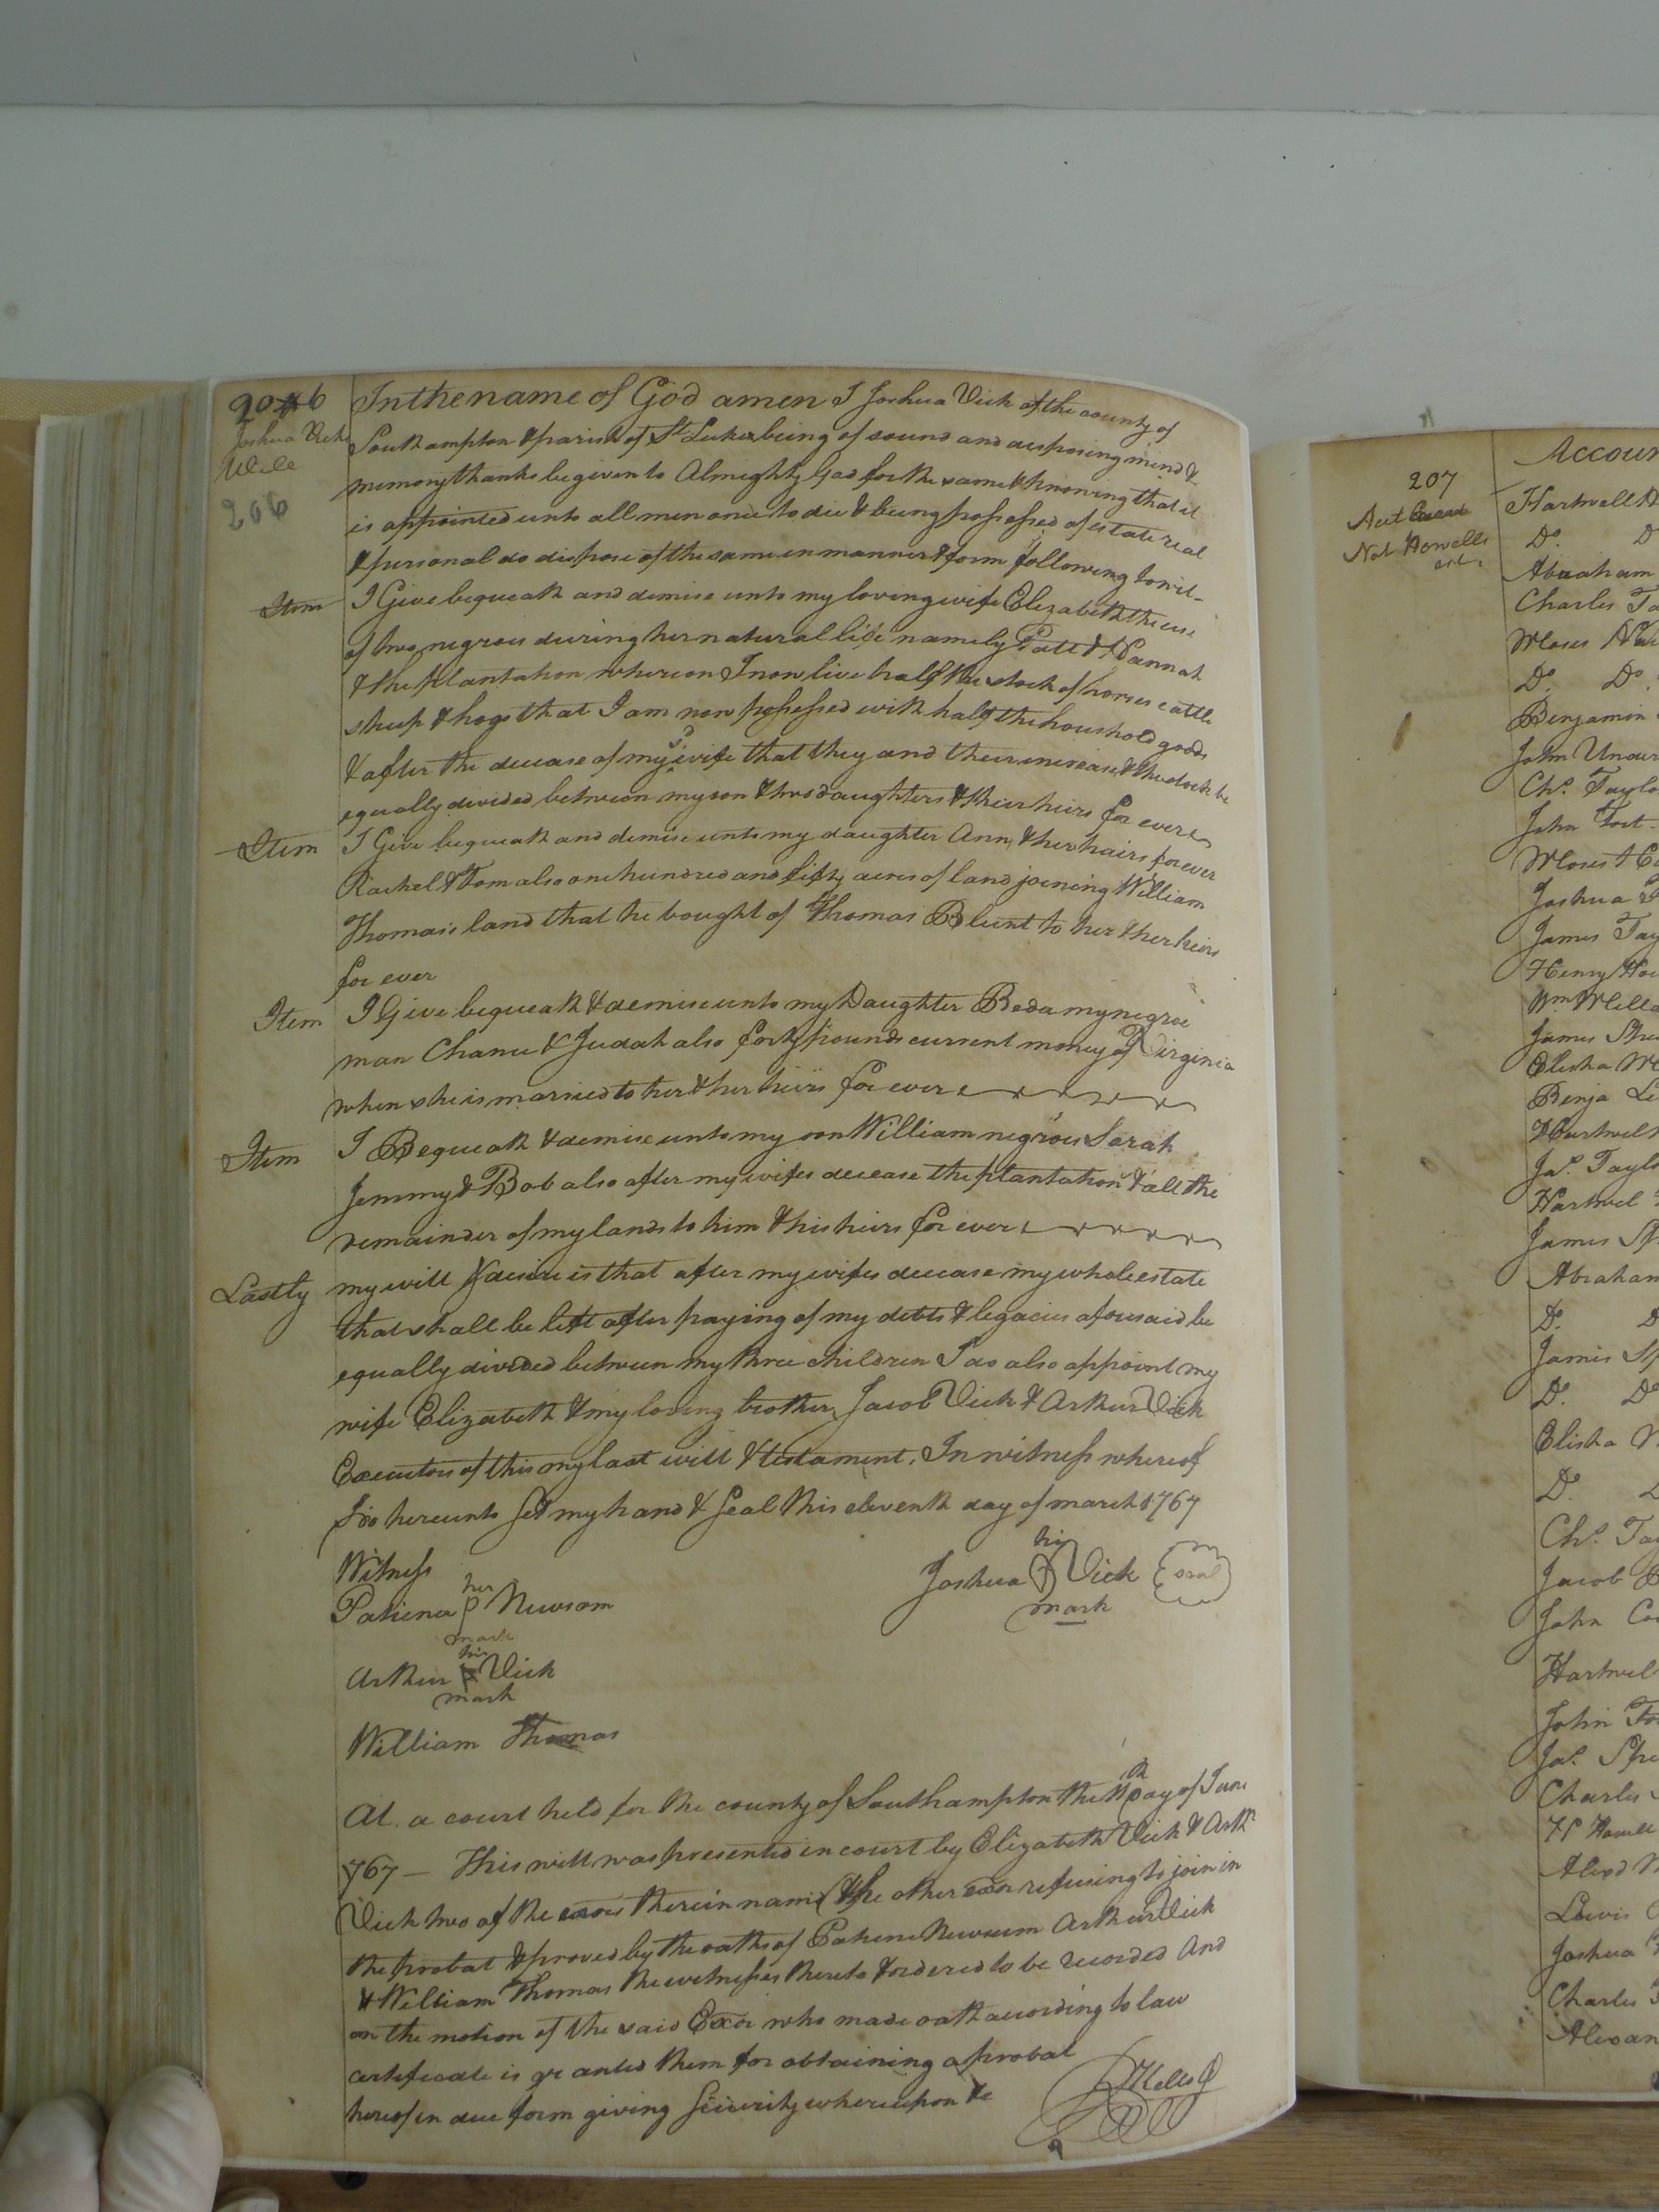 206
Joshua Vick
Will
206
In the name of God amen I Joshua Vick of the county of
Southampton & parish of St Lukes being of sound and disposing mind &
memory thanks be given to Almighty God for the same & knowing that it
is appointed unto all men once to die & being possessed of estate real
& personal do dispose of the same in manner & form following towit-
Item I Give bequeath and demise unto my loving wife Elizabeth the use
of two negroes during her natural life namely Patt & Hannah
& the plantation whereon I now live half the stock of horses cattle
sheep & hogs that I am now possessed with half the houshold goods
& after the decease of my sd wife that they and their increase & the stock be
equally divided between my son & two daughters & their heirs for ever
Item I Give bequeath and demise unto my daughter Ann & her hairs forever
Rachel & Tom also one hundred and fifty acres of land joining William
Thomas's land that he bought of Thomas Blunt to her & her heirs
for ever
Item I Give bequeath & demise unto my Daughter Beda my negroe
man Chance & Judah also forty pounds current money of Virginia
when she is married to her & her heirs for ever
Item I Bequeath & demise unto my son William negroes Sarah
Jemmy & Bob also after my wifes decease the plantation & all the
remainder of my lands to him & his heirs for ever
Lastly my will & desire is that after my wifes decease my whole estate
that shall be left after paying of my debts & legacies aforesaid be
equally divided between my three children I do also appoint my
wife Elizabeth & my loving brother Jacob Vick & Arthur Vick
Executors of this my last will & testament. In witness whereof
I do hereunto set my hand & seal this eleventh day of march 1767
Witness
his
Joshua Vick seal
mark
her
Patience P Newsom
mark
his
Arthur Vick
mark
William Thomas
At a court held for the county of Southampton the 11th day of June
1767 — This will was presented in court by Elizabeth Vick & Arthr
Vick two of the exors therein named the other exor refusing to join in
the probat & proved by the oaths of Patience Newsum Arthur Vick
& William Thomas the witnesses thereto & ordered to be recorded And
on the motion of the said Exor who made oath according to law
certificate is granted them for obtaining a probat
hereof in due form giving Security whereupon &c
207
Acct
Not Howells
est.
Accoun
Hartwell
Do. D
Abraham
Charles Ta
Moses
Do. Do.
Benjamin
John Under
Chs. Taylo
John Fort
Moses
Joshua
James Tay
Henry Ho
Wm
James
Elisha
Benja
Hartwell
Jas. Taylo
Hartwel
James Sp
Abraham
Do. D
James Sp
Do. Do
Elisha
Do.
Chs. Ta
Jacob B
John Co
Hartwel
John Fo
Jas. Spe
Charles
H Howell
Alexd
Lewis
Joshua
Charles
Alexan